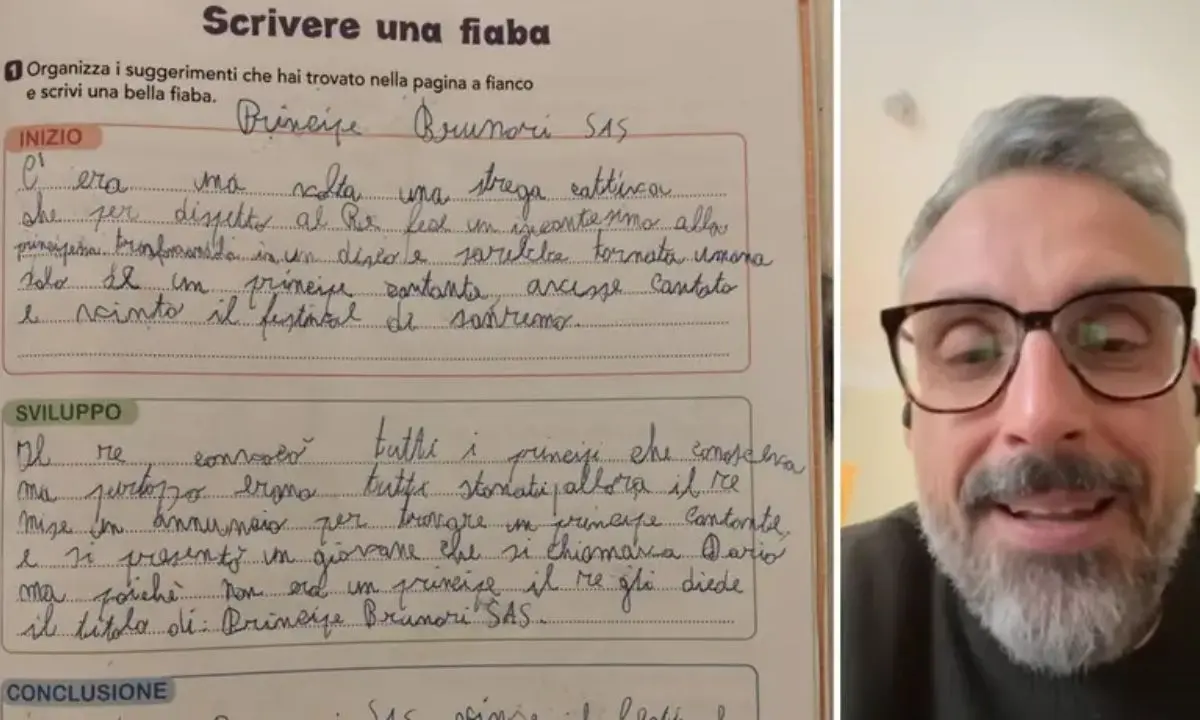 Scrivere una fiaba
1 Organizza i suggerimenti che hai trovato nella pagina a fianco
e scrivi una bella fiaba.
Principe Brunori SAS
INIZIO
C'era una volta una strega cattiva
che per dispetto al Re fece un incantesimo alla
principessa trasformandola in un disco e sarebbe tornata umana
solo se un principe cantante, avesse cantato
e vinto il festival di sanremo.
SVILUPPO
Il re convocò tutti i principi che conosceva
ma purtoppo erano tutti stonati, allora il re
mise un annuncio per trovare un principe cantante,
e si presentò un giovane che si chiamava Dario
ma poichè non era un principe il re gli diede
il titolo di: Principe Brunori SAS.
CONCLUSIONE
SAS vinse il